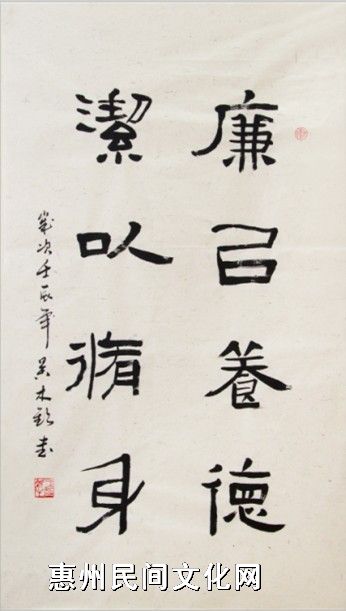 廉㠯養德
潔以脩身
歲次壬辰年 吴木書
惠州民间文化网